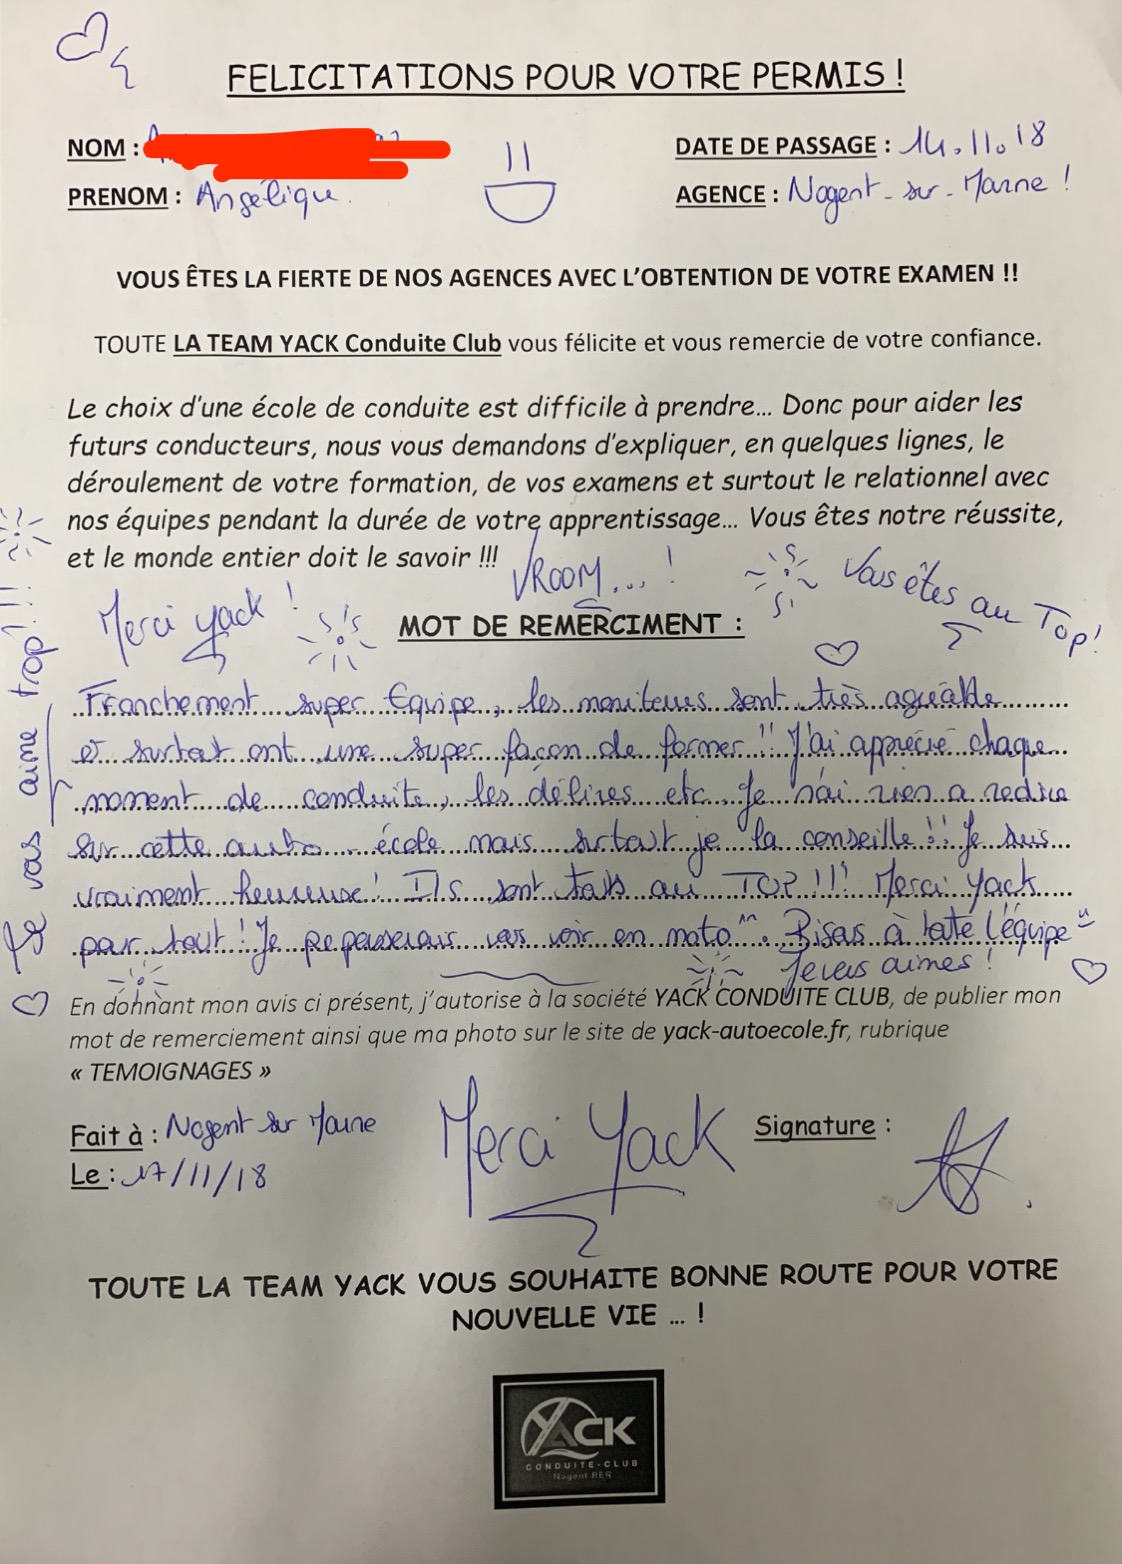 FELICITATIONS POUR VOTRE PERMIS !
NOM :
DATE DE PASSAGE : 14.11.18
PRENOM : Angélique.
AGENCE : Nogent-sur-Marne !
VOUS ÊTES LA FIERTE DE NOS AGENCES AVEC L'OBTENTION DE VOTRE EXAMEN !!
TOUTE LA TEAM YACK Conduite Club vous félicite et vous remercie de votre confiance.
Le choix d'une école de conduite est difficile à prendre... Donc pour aider les
futurs conducteurs, nous vous demandons d'expliquer, en quelques lignes, le
déroulement de votre formation, de vos examens et surtout le relationnel avec
nos équipes pendant la durée de votre apprentissage... Vous êtes notre réussite,
et le monde entier doit le savoir !!!
VROOM...!
Vous êtes au Top!
Merci yack !
MOT DE REMERCIMENT :
Franchement super Equipe, les moniteurs sont très agréable
et surtout ont une super façon de former !! J'ai apprécié chaque
moment de conduite, les délires etc. Je n'ai rien a redire
sur cette auto-école mais surtout je la conseille !! Je suis
vraiment heureuse! Ils sont tous au TOP!!! Merci Yack
pour tout! Je repasserais vous voir en moto ^^. Bisous à toute l'équipe
Je vous aimes !
Je vous aime trop!!!
En donnant mon avis ci présent, j'autorise à la société YACK CONDUITE CLUB, de publier mon
mot de remerciement ainsi que ma photo sur le site de yack-autoecole.fr, rubrique
« TEMOIGNAGES »
Fait à : Nogent sur Marne
Merci Yack
Signature :
Le : 17/11/18
TOUTE LA TEAM YACK VOUS SOUHAITE BONNE ROUTE POUR VOTRE
NOUVELLE VIE ... !
YACK
CONDUITE-CLUB
Nogent RER